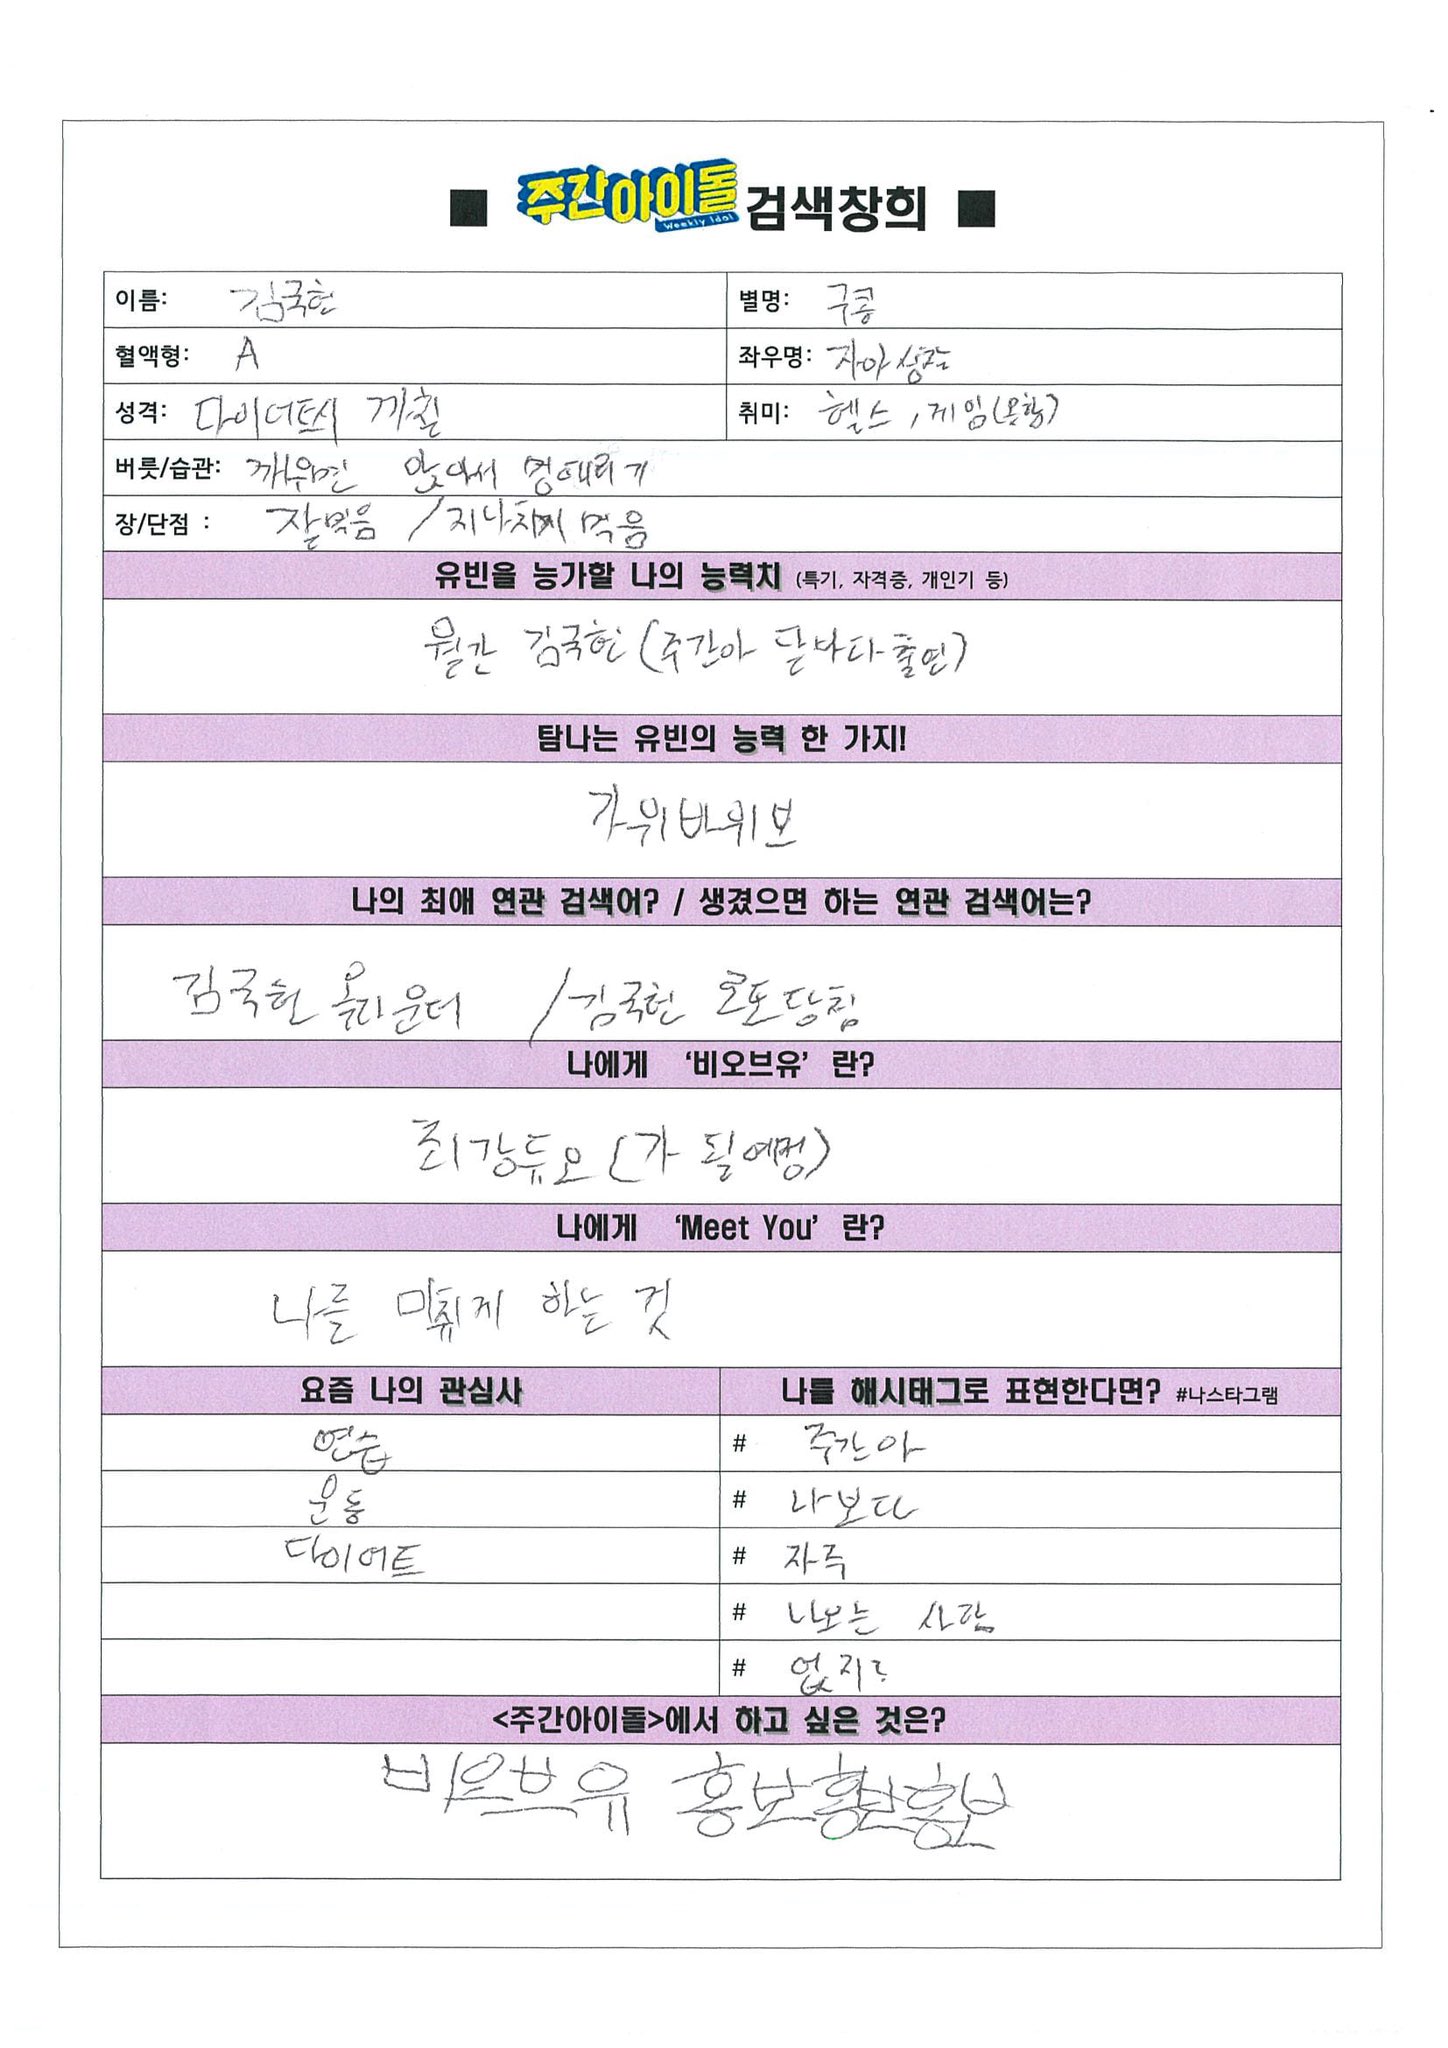 ■ 주간아이돌 Weekly Idol 검색창희 ■
이름: 김국헌 별명: 구콩
혈액형: A 좌우명: 자아성찰
성격: 다이어트시 까칠 취미: 헬스, 게임(못함)
버릇/습관: 깨우면 앉아서 멍때리기
장/단점 : 잘먹음 / 지나치게 먹음
유빈을 능가할 나의 능력치 (특기, 자격증, 개인기 등)
월간 김국헌 (주간아 달마다 출연)
탐나는 유빈의 능력 한 가지!
가위바위보
나의 최애 연관 검색어? / 생겼으면 하는 연관 검색어는?
김국헌 올라운더 / 김국헌 로또당첨
나에게 ‘비오브유’ 란?
최강듀오 (가 될예정)
나에게 ‘Meet You’ 란?
나를 미취게 하는 것
요즘 나의 관심사 나를 해시태그로 표현한다면? #나스타그램
연습 # 주간아
운동 # 나보다
다이어트 # 자주
# 나오는 사람
# 없지?
<주간아이돌>에서 하고 싶은 것은?
비오브유 홍보홍보홍보